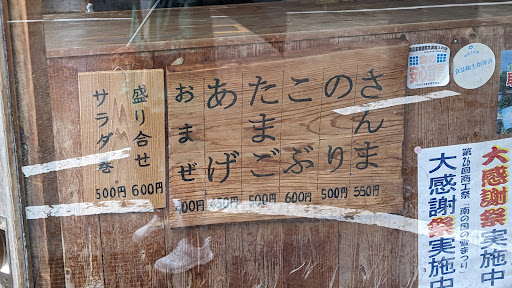 さんま 550円
のり 500円
こぶ 600円
たまご 500円
あげ
おまぜ
盛り合せ 600円
サラダ巻 500円
大感謝祭実施中
第26回商工祭 南の国の雪まつり
大感謝祭実施中